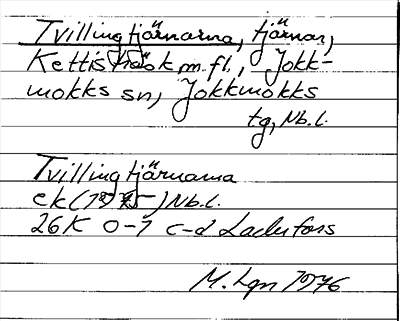 Tvillingtjärnarna, tjärnar,
m.fl., Jokk-
mokks sn, Jokkmokks
tg, Nb.l.
Tvillingtjärnarna
ek (1975) Nb.l.
26K 0-1 c-d Laduforss
M. Lgn 1976